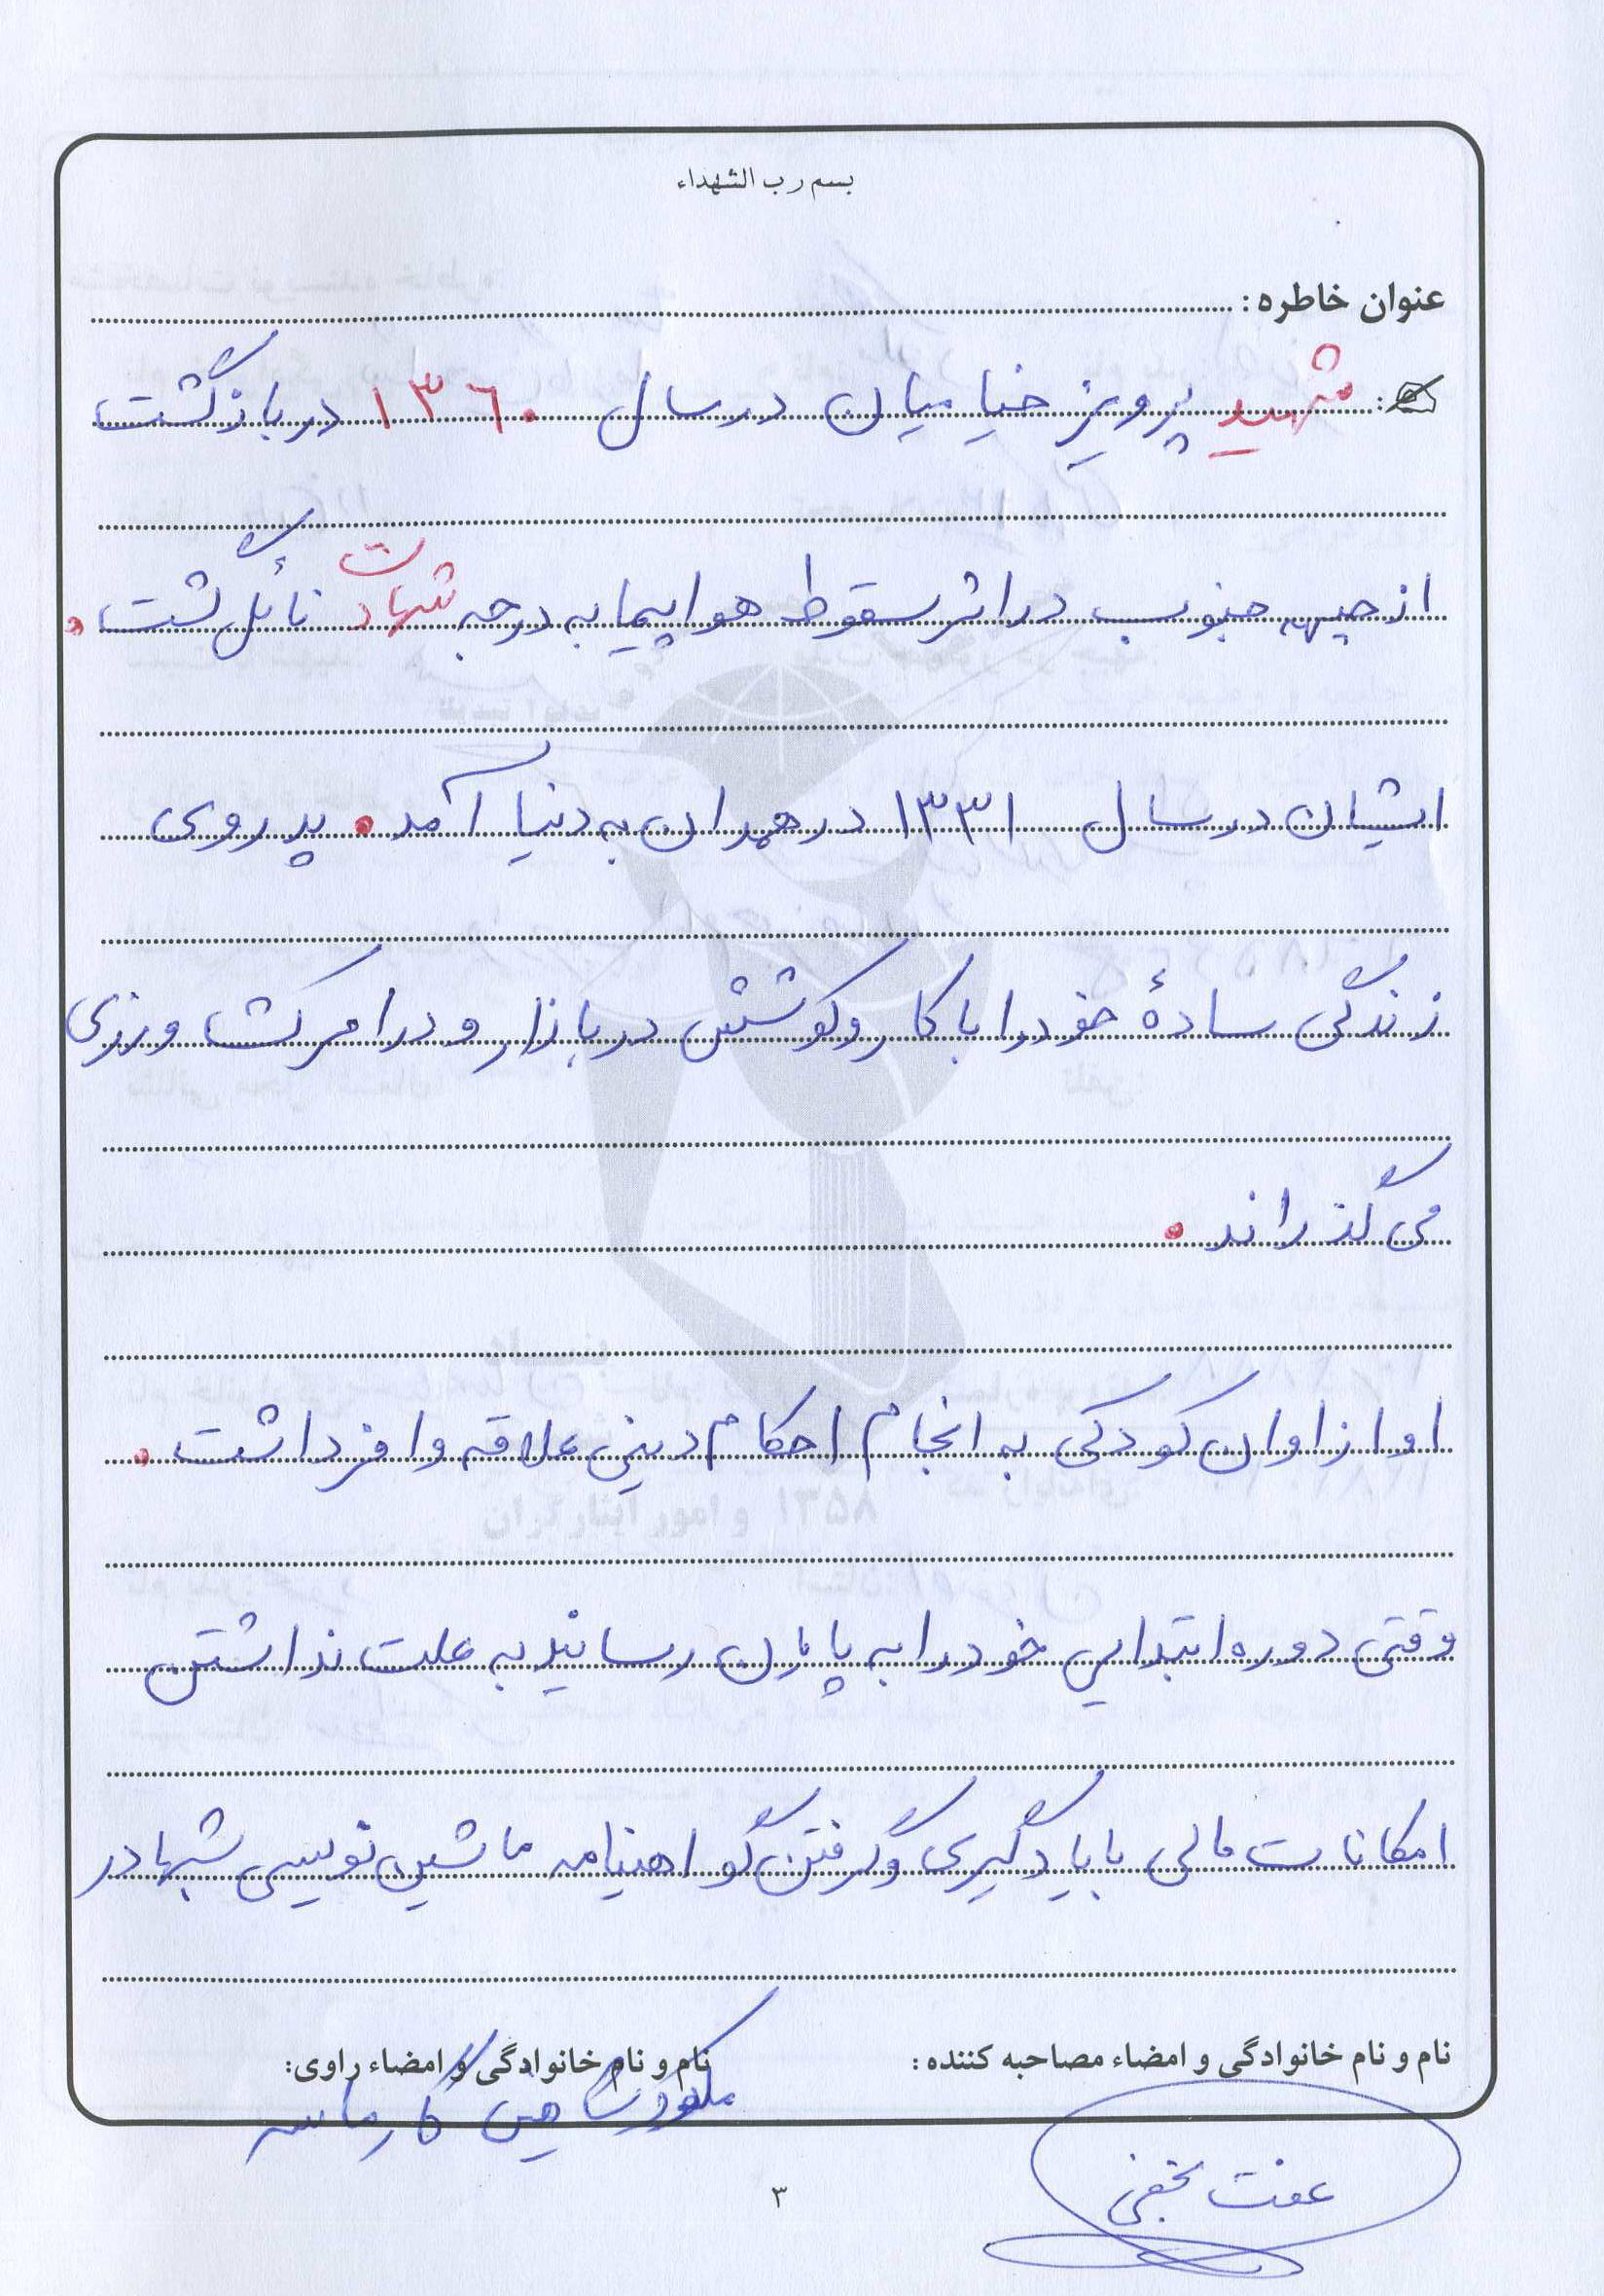 بسم رب الشهداء
عنوان خاطره:
شهید پرویز خیامیان در سال ۱۳۶۰ در بازگشت
از جبهه جنوب در اثر سقوط هواپیما به درجه شهادت نائل گشت.
ایشان در سال ۱۳۳۱ در همدان به دنیا آمد. پدر وی
زندگی سادهٔ خود را با کار و کوشش در بازار و در امر کشاورزی
می گذراند.
او از اوان کودکی به انجام احکام دینی علاقه وافر داشت.
وقتی دوره ابتدایی خود را به پایان رسانید به علت نداشتن
امکانات مالی با یادگیری و گرفتن گواهینامه ماشین نویسی شبها در
نام و نام خانوادگی و امضاء مصاحبه کننده:
نام و نام خانوادگی و امضاء راوی:
عفت نجفی
۳